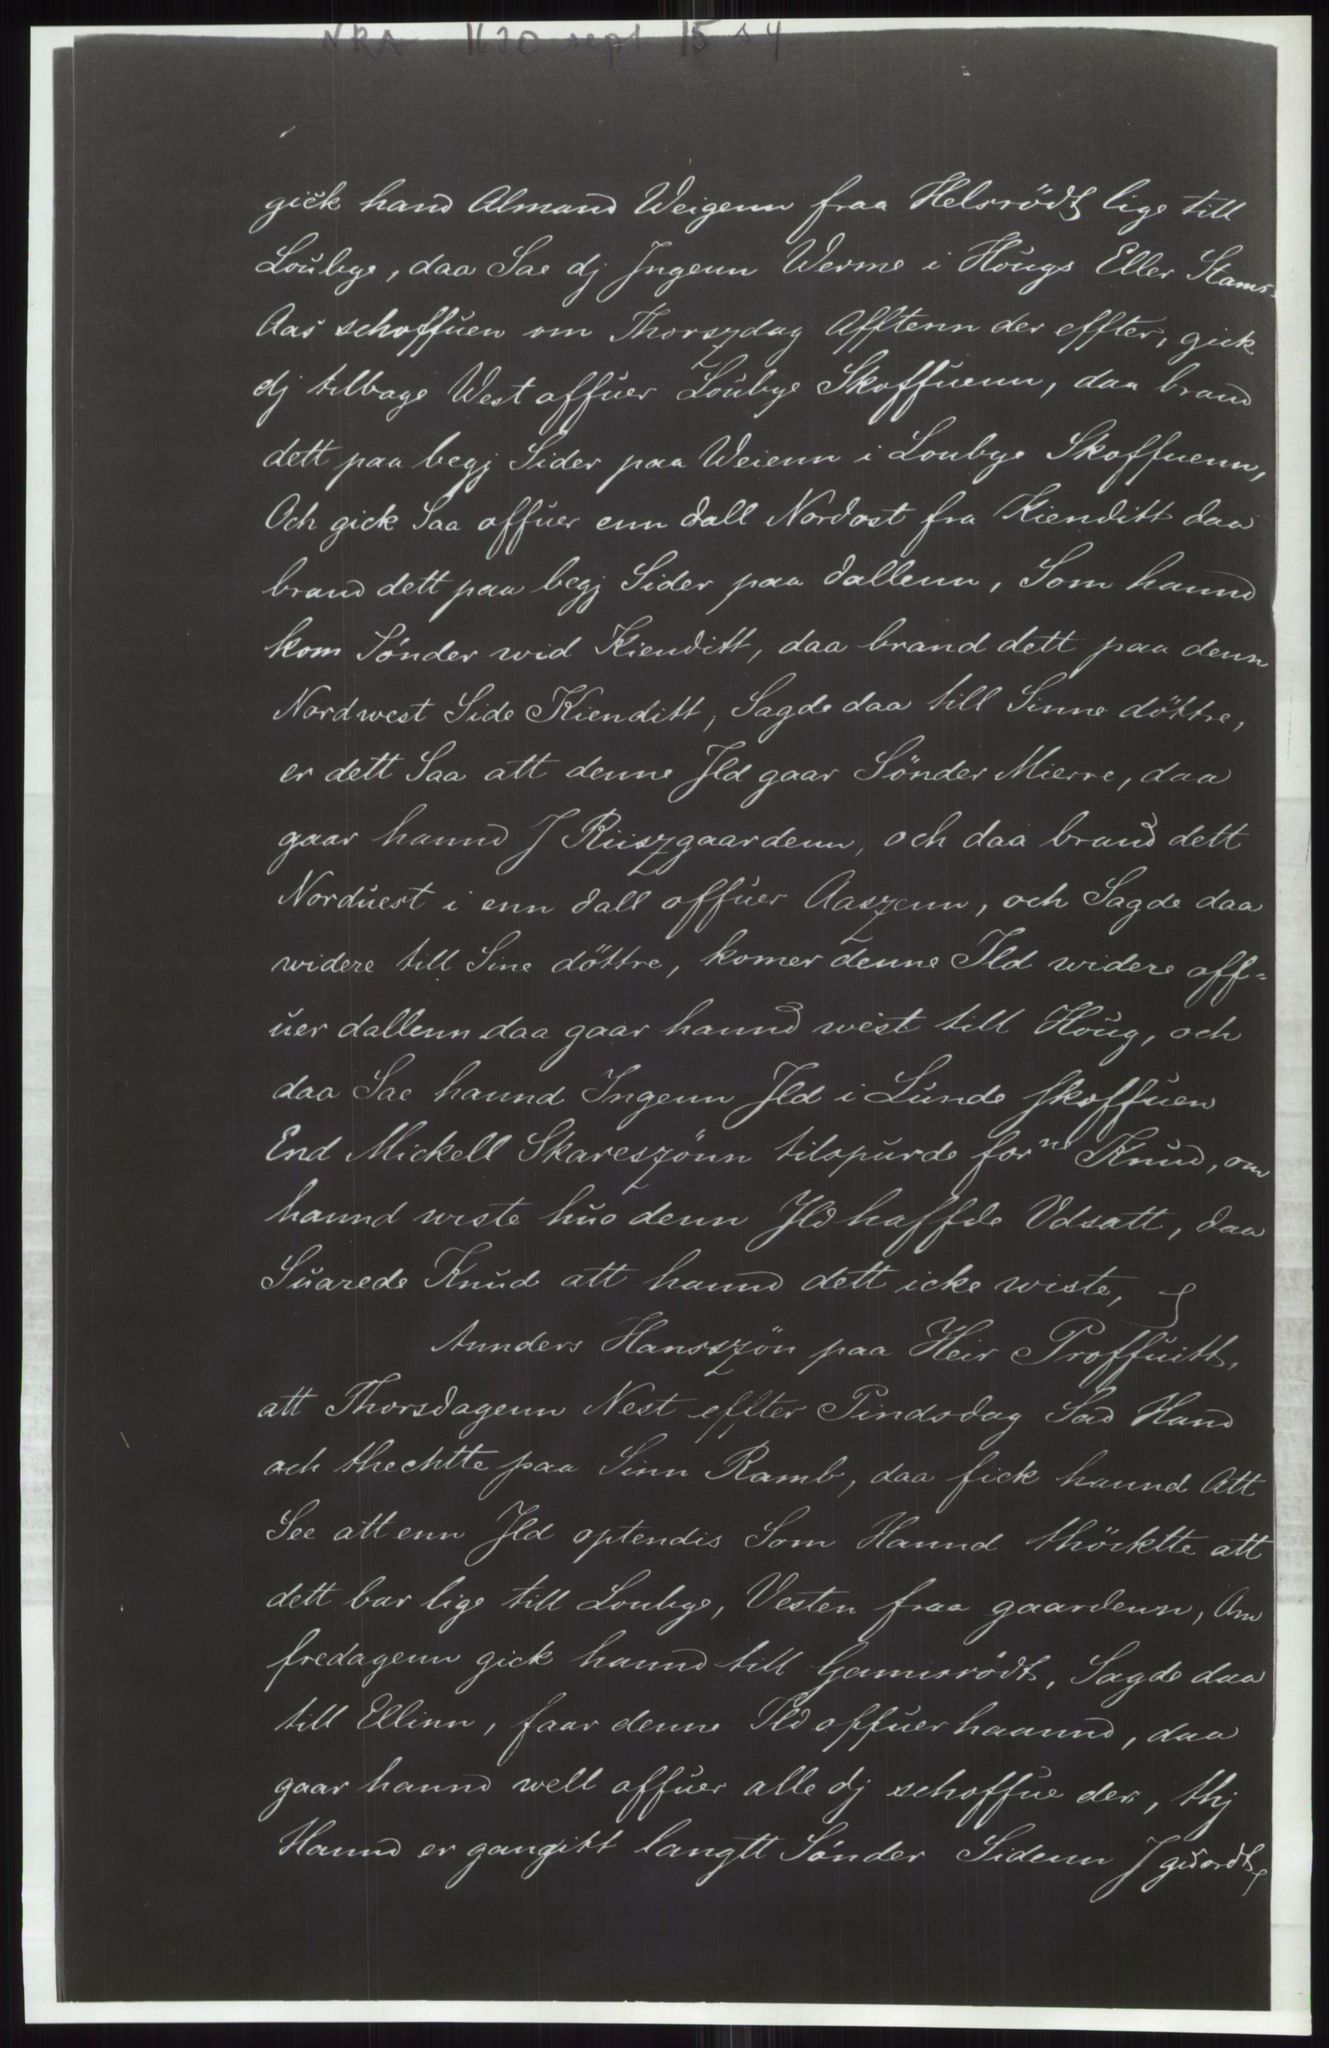 NRA 1620 sept 15 s 4
gick hand Almand Weigenn fraa Helsrödt lige till
Loubye, daa Sae dj Jngenn Werme i Hougs Eller Stams-
Aas schoffuen om Thorszdag Afftenn der effter, gick
dj tilbage West offuer Loubye Skoffuenn, daa brand
dett paa begj Sider paa Weienn i Loubye Skoffuenn,
Och gick Saa offuer enn dall Nordost fra Kienditt daa
brand dett paa begj Sider paa dallenn, Som hannd
kom Sønder wid Kienditt, daa brand dett paa denn
Nordwest Side Kienditt, Sagde daa till Sinne döttre,
er dett Saa att denne Jld gaar Sönder Mierre, daa
gaar hannd J Riiszgaardenn, och daa brand dett
Norduest i enn dall offuer Aaszenn, och Sagde daa
widere till Sine döttre, komer denne Ild widere off-
uer dallenn daa gaar hannd west till Houg, och
daa Sae hannd Ingenn Jld i Lunde skoffuen
End Mickell Skareszönn tilspurde forne Knud, om
hannd wiste huo denn Jld haffde Udsatt, daa
Suarede Knud att hannd dett icke wiste,
Annders Hansszön paa Heir Proffuitt,
att Thorsdagenn Nest effter Pindsdag Sad Hand
och thechtte paa Sinn Ramb, daa fick hannd Att
See att enn Jld optendis Som Hannd thöcktte att
dett bar lige till Loubye, Vesten fraa gaardenn, Om
fredagenn gick hannd till Gamisrödt, Sagde daa
till Ellinn, faar denne Ild offuerhaannd, daa
gaar hannd well offuer alle dj schoffue der, thj
Hannd er gangitt langtt Sønder Sidenn J giordt